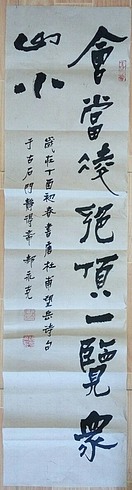 會當凌絕頂一覽眾
山小
歲在丁酉初春書唐杜甫望岳詩句
于古石門靜得齋郝永亮